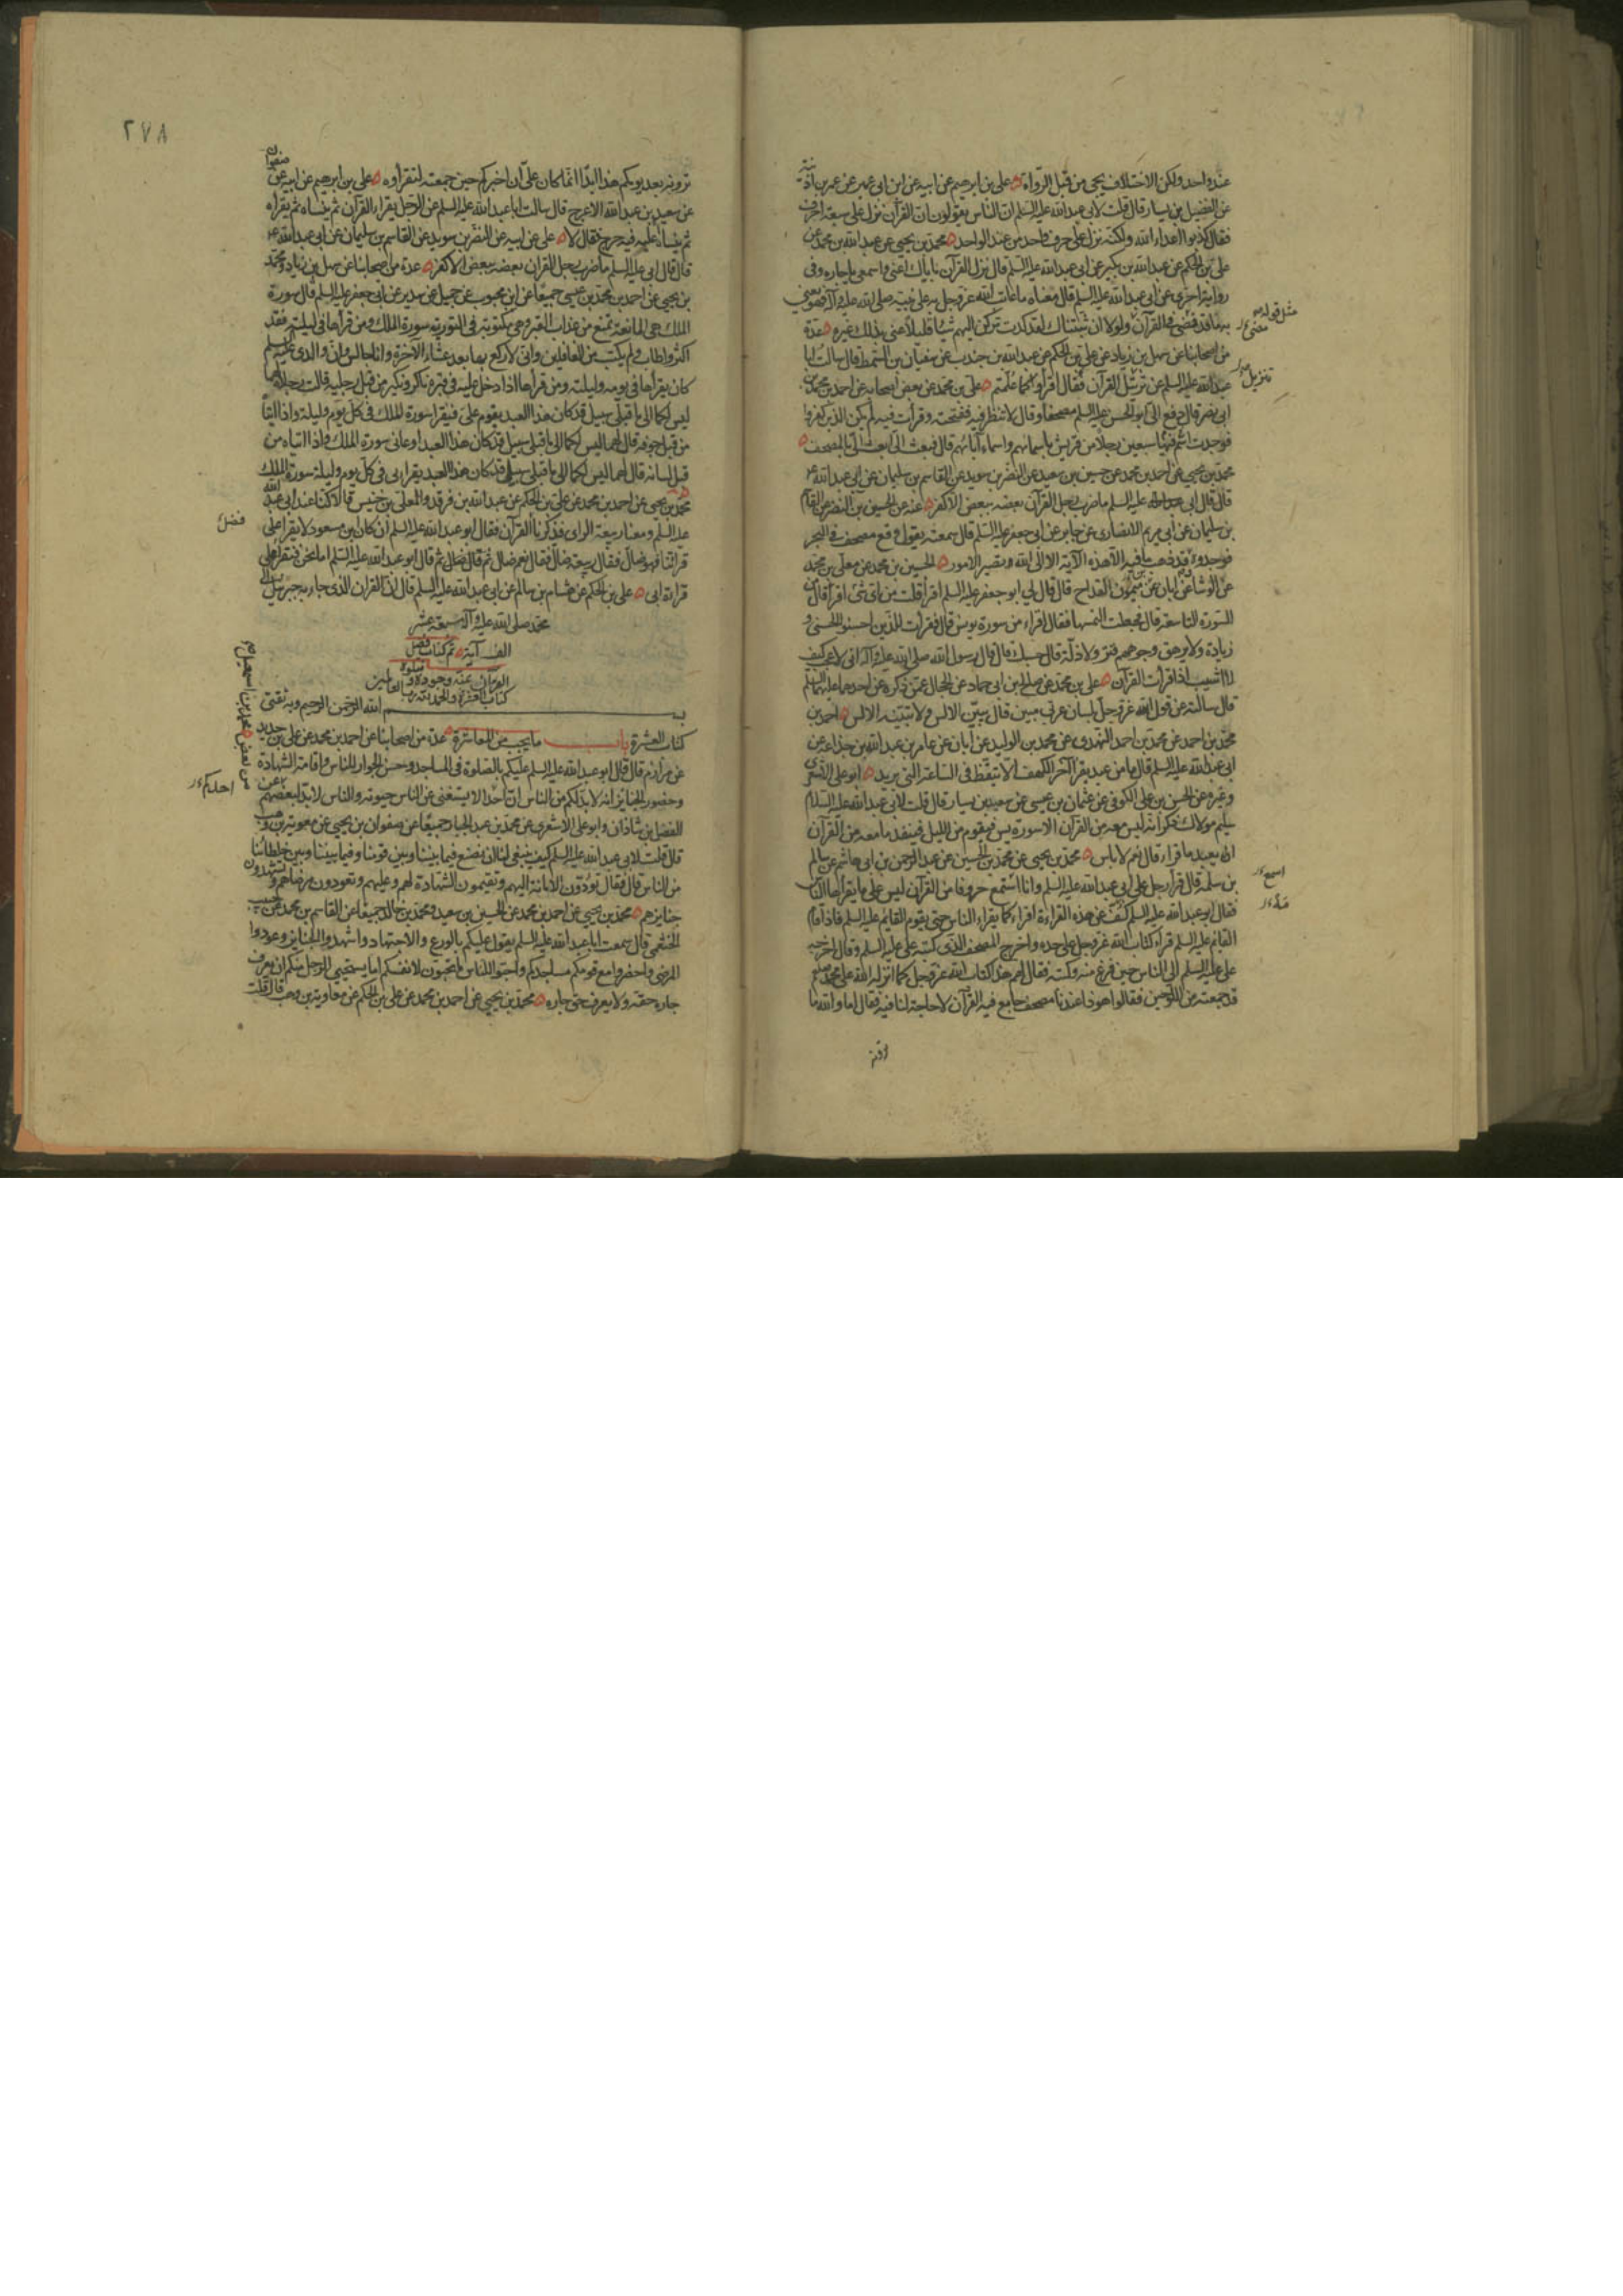 عند واحد ولكن الاختلاف يجئ من قبل الرواة علي بن ابرهيم عن ابيه عن ابن ابي عمير عن عمر بن اذينة
عن الفضيل بن يسار قال قلت لابي عبدالله عليه السلم ان الناس يقولون ان القرآن نزل على سبعة احرف
فقال كذبوا اعداء الله ولكنه نزل على حرف واحد من عند الواحد محمد بن يحيى عن عبدالله بن محمد عن
علي بن الحكم عن عبدالله بن بكير عن ابي عبدالله عليه السلم قال نزل القرآن باياك اعنى واسمعى يا جاره وفى
رواية اخرى عن ابي عبدالله عليه السلم قال معناه ما عاتب الله عز وجل به على نبيه صلى الله عليه وآله فهو يعنى
به ما قد مضى فى القرآن ولولا ان ثبتناك لقد كدت تركن اليهم شيئا قليلا عنى بذلك غيره عدة
مثل قوله
عنى
من اصحابنا عن سهل بن زياد عن علي بن الحكم عن عبدالله بن جندب عن سفيان بن السمط قال سالت ابا
عبدالله عليه السلم عن ترتيل القرآن فقال اقرأوا كما علمتم علي بن محمد عن بعض اصحابه عن احمد بن محمد بن
تنزيل
ابي نصر قال دفع الى ابو الحسن عليه السلم مصحفا وقال لا تنظر فيه ففتحته وقرأت فيه لم يكن الذين كفروا
فوجدت اسم فيها سبعين رجلا من قريش باسمائهم واسماء آبائهم قال فبعث الى ابعث الى بالمصحف
محمد بن يحيى عن احمد بن محمد عن حسين بن سعيد عن النضر بن سويد عن القاسم بن سليمان عن ابي عبدالله
قال قال ابي عليه السلم ما ضرب رجل القرآن بعضه ببعض الا كفر عنه عن الحسين بن النضر عن القاسم
بن سليمان عن ابي مريم الانصارى عن جابر عن ابي جعفر عليه السلم قال سمعته يقول وقع مصحف فى البحر
فوجدوه قد ذهب ما فيه الا هذه الآية الا الى الله تصير الامور الحسين بن محمد عن معلى بن محمد
عن الوشا عن ابان عن ميمون القداح قال قال لي ابو جعفر عليه السلم اقرأ قلت من اى شئ اقرأ قال من
السورة التاسعة قال فجعلت التمسها فقال اقراء من سورة يونس قال فقرأت للذين احسنوا الحسنى و
زيادة ولا يرهق وجوههم قتر ولا ذلة قال حسبك قال قال رسول الله صلى الله عليه وآله انى لاعجب كيف
لا اشيب اذا قرأت القرآن علي بن محمد عن صالح بن ابي حماد عن الحجال عمن ذكره عن احدهما عليهما السلم
قال سالته عن قول الله عز وجل بلسان عربى مبين قال يبين الالسن ولا تبينه الالسن احمد بن
محمد بن احمد عن محمد بن احمد النهدى عن محمد بن الوليد عن ابان عن عامر بن عبدالله بن جذاعة عن
ابي عبدالله عليه السلم قال ما من عبد يقرأ آخر الكهف الا تيقظ فى الساعة التى يريد ابو على الاشعرى
وغيره عن الحسن بن على الكوفى عن عثمان بن عيسى عن سعيد بن يسار قال قلت لابي عبدالله عليه السلام
سليم مولاك ذكر انه ليس معه من القرآن الا سورة يس فيقوم من الليل فينفد ما معه من القرآن
ان يعيد ما قراء قال نعم لا باس محمد بن يحيى عن محمد بن الحسين عن عبد الرحمن بن ابي هاشم عن سالم
بن سلمه قال قرأ رجل على ابي عبدالله عليه السلم وانا استمع حروفا من القرآن ليس على ما يقرأها الناس
اسمع
فقال ابو عبدالله عليه السلم كف عن هذه القراءة اقراء كما يقراء الناس حتى يقوم القايم عليه السلم فاذا قام
القائم عليه السلم قراء كتاب الله عز وجل على حده واخرج المصحف الذى كتبه علي عليه السلم وقال اخرجه
علي عليه السلم الى الناس حين فرغ منه وكتبه فقال لهم هذا كتاب الله عز وجل كما انزله الله على محمد
قد جمعته من اللوحين فقالوا هوذا عندنا مصحف جامع فيه القرآن لا حاجة لنا فيه فقال اما والله ما
٢٧٨
ترونه بعد يومكم هذا ابدا انما كان علي ان اخبركم حين جمعته لتقرأوه علي بن ابرهيم عن ابيه عن صفوان
عن سعيد بن عبدالله الاعرج قال سالت ابا عبدالله عليه السلم عن الرجل يقراء القرآن ثم ينساه ثم يقرأه
ثم ينساه اعليه فيه حرج فقال لا علي عن ابيه عن النضر بن سويد عن القاسم بن سليمان عن ابي عبدالله
قال قال ابي عليه السلم ما ضرب رجل القرآن بعضه ببعض الا كفر عدة من اصحابنا عن سهل بن زياد ومحمد
بن يحيى عن احمد بن محمد بن عيسى جميعا عن ابن محبوب عن جميل عن سدير عن ابي جعفر عليه السلم قال سورة
الملك هى المانعة تمنع من عذاب القبر وهى مكتوبة فى التورية سورة الملك ومن قرأها فى ليلته فقد
اكثر واطاب ولم يكتب من الغافلين وانى لاركع بها بعد عشاء الآخرة وانا جالس وان والدى عليه السلم
كان يقرأها فى يومه وليلته ومن قرأها اذا دخل عليه فى قبره ناكر ونكير من قبل رجليه قالت رجلاه لهما
ليس لكما الى ما قبلى سبيل قد كان هذا العبد يقوم على فيقرا سورة الملك فى كل يوم وليلة واذا اتياه
من قبل جوفه قال لهما ليس لكما الى ما قبلى سبيل قد كان هذا العبد اوعانى سورة الملك واذا اتياه من
قبل لسانه قال لهما ليس لكما الى ما قبلى سبيل قد كان هذا العبد يقرا بى فى كل يوم وليلة سورة الملك
محمد بن يحيى عن احمد بن محمد عن علي بن الحكم عن عبدالله بن فرقد والمعلى بن خنيس قالا كنا عند ابي عبدالله
عليه السلم ومعنا ربيعة الراى فذكرنا القرآن فقال ابو عبدالله عليه السلم ان كان ابن مسعود لا يقرا على
فضل
قرائتنا فهو ضال فقال ربيعة ضال فقال نعم ضال ثم قال ابو عبدالله عليه السلم اما نحن فنقرا على
قراءة ابى علي بن الحكم عن هشام بن سالم عن ابي عبدالله عليه السلم قال ان القرآن الذى جاء به جبرئيل الى
محمد صلى الله عليه وآله سبعة عشر
الف آية تم كتاب فضل
القرآن بمنه وجوده ويتلوه
كتاب العشرة والحمد لله رب العالمين
بسم الله الرحمن الرحيم وبه ثقتى
كتاب العشرة باب ما يجب من المعاشرة عدة من اصحابنا عن احمد بن محمد عن علي بن حديد
عن مرازم قال قال ابو عبدالله عليه السلم عليكم بالصلوة فى المساجد وحسن الجوار للناس واقامة الشهادة
وحضور الجنايز انه لا بد لكم من الناس ان احدا لا يستغنى عن الناس حيوته والناس لا بد لبعضهم من بعض
احدكم
محمد بن اسمعيل عن
الفضل بن شاذان وابو على الاشعرى عن محمد بن عبد الجبار جميعا عن صفوان بن يحيى عن معوية بن وهب
قال قلت لابي عبدالله عليه السلم كيف ينبغى لنا ان نصنع فيما بيننا وبين قومنا وفيما بيننا وبين خلطائنا
من الناس قال فقال تؤدون الامانة اليهم وتقيمون الشهادة لهم وعليهم وتعودون مرضاهم وتشهدون
جنايزهم محمد بن يحيى عن احمد بن محمد عن الحسين بن سعيد ومحمد بن خالد جميعا عن القاسم بن محمد عن حبيب
الخثعمى قال سمعت ابا عبدالله عليه السلم يقول عليكم بالورع والاجتهاد واشهدوا الجنايز وعودوا
المرضى واحضروا مع قومكم مساجدكم واحبوا للناس ما تحبون لانفسكم اما يستحيى الرجل منكم ان يعرف
جاره حقه ولا يعرف حق جاره محمد بن يحيى عن احمد بن محمد عن علي بن الحكم عن معاوية بن وهب قال قلت